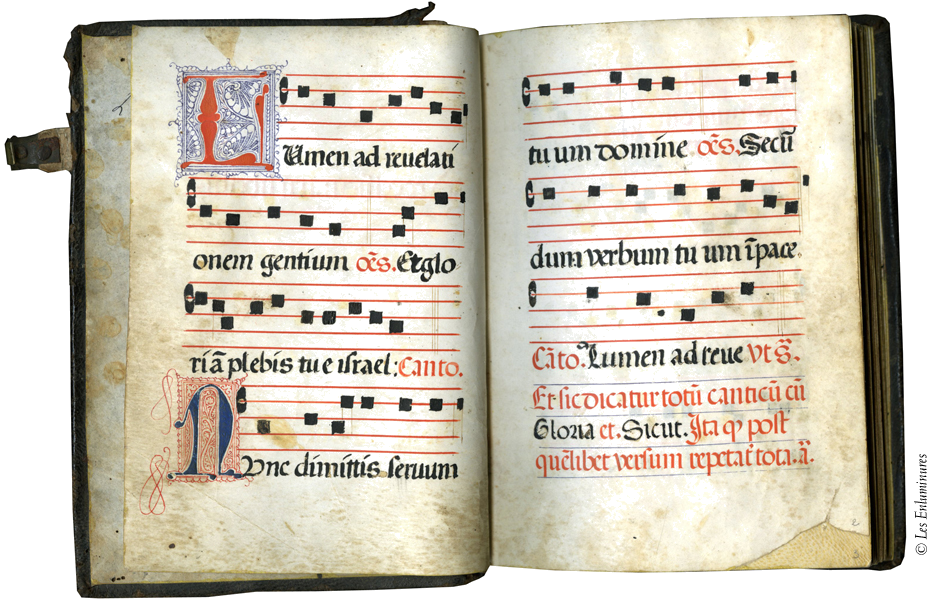 LUmen ad reuelati
onem gentium oēs. Et glo
ri ā plebis tu e israel: Canto.
NVnc dimittis seruum
tu um domine oēs. Secū
dum verbum tu um ī pace
Cāto. Lumen ad reue vt S̄.
Et sic dicatur totū canticū cū
Gloria et. Sicut. Ita q̢ post
quēlibet versum repetat͛ tota. a̅.
© Les Enluminures